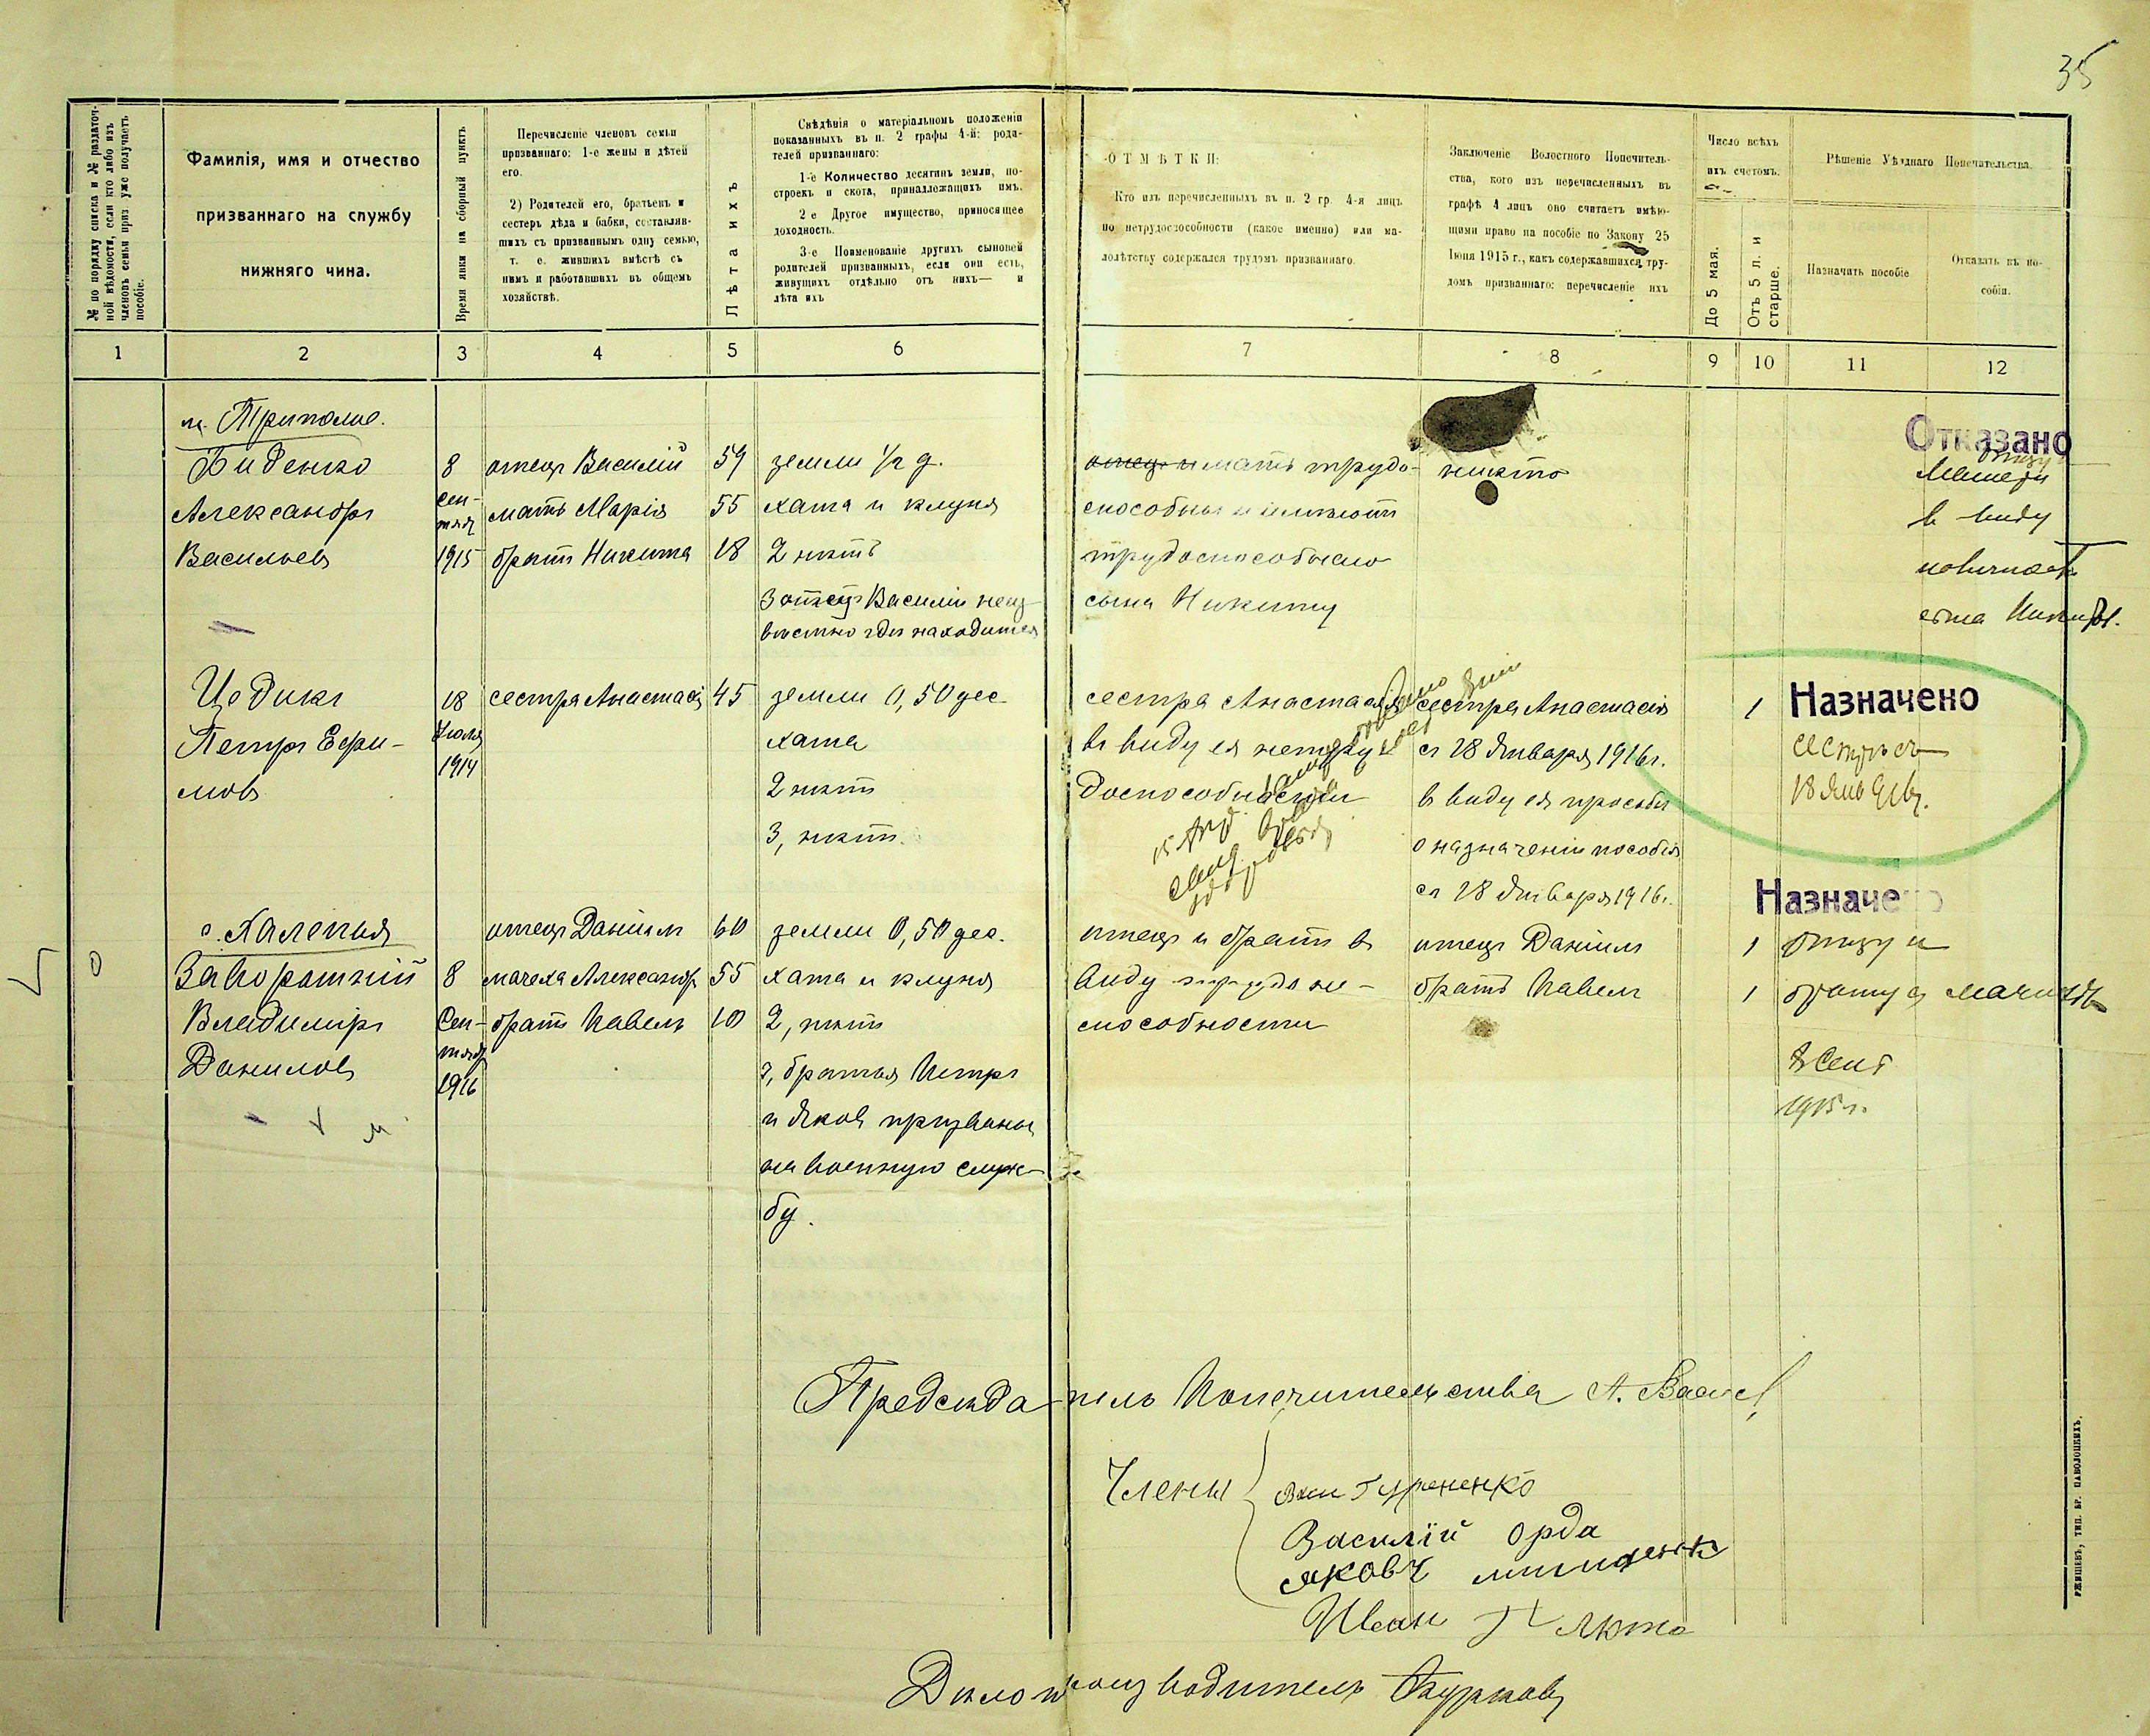 35
№ по порядку списка и № раздаточ-
ной вѣдомости, если кто либо изъ
членовъ семьи приз. уже получаетъ
пособіе.
Фамилія, имя и отчество
призваннаго на службу
нижняго чина.
Время явки на сборный пунктъ
Перечисленіе членовъ семьи
призваннаго: 1-е жены и дѣтей
его.
2) Родителей его, братьевъ и
сестеръ дѣда и бабки, составляв-
шихъ съ призваннымъ одну семью,
т. е. жившихъ вмѣстѣ съ
нимъ и работавшихъ въ общемъ
хозяйствѣ.
Лѣта ихъ
Свѣдѣнія о матеріальномъ положеніи
показанныхъ въ п. 2 графы 4-й: роди-
телей призваннаго:
1-е Количество десятинъ земли, по-
строекъ и скота, принадлежащихъ имъ.
2 е Другое имущество, приносящее
доходность.
3-е Поименованіе другихъ сыновей
родителей призванныхъ, если они есть,
живущихъ отдѣльно отъ нихъ— и
лѣта ихъ
ОТМѢТКИ:
Кто изъ перечисленныхъ въ п. 2 гр. 4-я лицъ
по нетрудоспособности (какое именно) или ма-
лолѣтству содержался трудомъ призваннаго.
Заключеніе Волостного Попечитель-
ства, кого изъ перечисленныхъ въ
графѣ 4 лицъ оно считаетъ имѣю-
щими право на пособіе по Закону 25
Іюня 1915 г., какъ содержавшихся тру-
домъ призваннаго: перечисленіе ихъ
Число всѣхъ
ихъ счетомъ.
До 5 мая.
Отъ 5 л. и
старше.
Рѣшеніе Уѣзднаго Попечительства.
Назначить пособіе
Отказать въ по-
собіи.
1 2 3 4 5 6 7 8 9 10 11 12
м. Триполье.
Биденко 8 отецъ Василій 59 земли 1/2 д. отец и мать трудо- никто Отказано
Александръ Сен- мать Марія 55 хата и клуня способны и имѣютъ Матери
тяб
Васильевъ 1915 братъ Никита 18 2 нѣтъ трудоспособнаго в виду
3 отецъ Василій неиз- сына Никиту
вѣстно гдѣ находится сына Никиты.
Цедикъ 18 сестра Анастасія 45 земли 0,50 дес. сестра Анастасія сестра Анастасія 1 Назначено
Петръ Ефи- Іюля хата въ виду ея нетру съ 18 Января 1916 г. сестрѣ съ
1914
мовъ 2 нѣтъ доспособности въ виду ея просьбы 18 Янв 916 г.
3, нѣтъ. о назначеніи пособія
съ 18 Января 1916 г.
Назначено
с. Халепья отецъ Даніилъ 60 земли 0,50 дес. отецъ и братъ в отецъ Даніилъ 1 отцу и
0 Заворотній 8 мачеха Александр 55 хата и клуня виду нетрудо не- братъ Павелъ 1 брату и мачихѣ
Владиміръ Сен- братъ Павелъ 10 2, нѣтъ способности
тяб
Даниловъ 3, братья Петръ 8 Сент
1916 1915 г.
и Яковъ призваны
на военную служ-
бу.
Предсѣдатель Попечительства А.
Члены
Василій Орда
Яковъ
Иван
Дѣлопроизводитель
РЖИЩЕВЪ, ТИП. БР. ПАВОЛОЦКИХЪ.